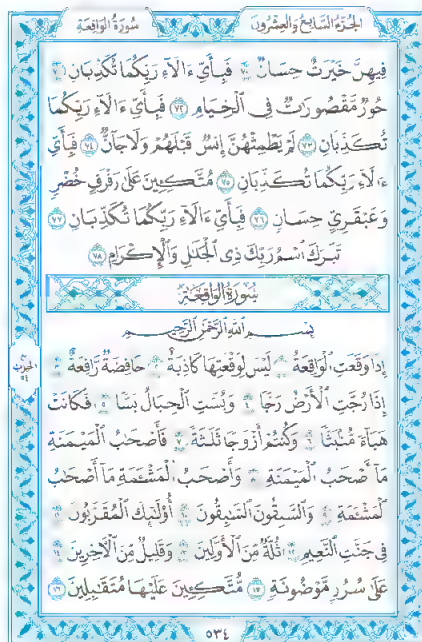 سُورَةُ الوَاقِعَةِ الجُزْءُ السَّابِعُ وَالعِشْرُونَ
فِيهِنَّ خَيْرَٰتٌ حِسَانٌ ٧٠ فَبِأَيِّ ءَالَآءِ رَبِّكُمَا تُكَذِّبَانِ ٧١
حُورٌ مَّقْصُورَٰتٌ فِي ٱلْخِيَامِ ٧٢ فَبِأَيِّ ءَالَآءِ رَبِّكُمَا
تُكَذِّبَانِ ٧٣ لَمْ يَطْمِثْهُنَّ إِنسٌ قَبْلَهُمْ وَلَا جَآنٌّ ٧٤ فَبِأَيِّ
ءَالَآءِ رَبِّكُمَا تُكَذِّبَانِ ٧٥ مُتَّكِـِٔينَ عَلَىٰ رَفْرَفٍ خُضْرٍ
وَعَبْقَرِيٍّ حِسَانٍ ٧٦ فَبِأَيِّ ءَالَآءِ رَبِّكُمَا تُكَذِّبَانِ ٧٧
تَبَٰرَكَ ٱسْمُ رَبِّكَ ذِي ٱلْجَلَٰلِ وَٱلْإِكْرَامِ ٧٨
سُورَةُ الوَاقِعَةِ
بِسْمِ ٱللَّهِ ٱلرَّحْمَٰنِ ٱلرَّحِيمِ
إِذَا وَقَعَتِ ٱلْوَاقِعَةُ ١ لَيْسَ لِوَقْعَتِهَا كَاذِبَةٌ ٢ خَافِضَةٌ رَّافِعَةٌ ٣
إِذَا رُجَّتِ ٱلْأَرْضُ رَجًّا ٤ وَبُسَّتِ ٱلْجِبَالُ بَسًّا ٥ فَكَانَتْ
هَبَآءً مُّنۢبَثًّا ٦ وَكُنتُمْ أَزْوَٰجًا ثَلَٰثَةً ٧ فَأَصْحَٰبُ ٱلْمَيْمَنَةِ
مَآ أَصْحَٰبُ ٱلْمَيْمَنَةِ ٨ وَأَصْحَٰبُ ٱلْمَشْـَٔمَةِ مَآ أَصْحَٰبُ
ٱلْمَشْـَٔمَةِ ٩ وَٱلسَّٰبِقُونَ ٱلسَّٰبِقُونَ ١٠ أُو۟لَٰٓئِكَ ٱلْمُقَرَّبُونَ ١١
فِي جَنَّٰتِ ٱلنَّعِيمِ ١٢ ثُلَّةٌ مِّنَ ٱلْأَوَّلِينَ ١٣ وَقَلِيلٌ مِّنَ ٱلْأَخِرِينَ ١٤
عَلَىٰ سُرُرٍ مَّوْضُونَةٍ ١٥ مُّتَّكِـِٔينَ عَلَيْهَا مُتَقَٰبِلِينَ ١٦
٥٣٤